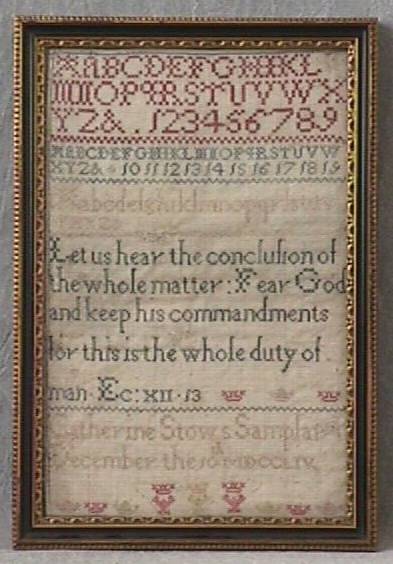 ABCDEFGHIKL
MNOPQRSTUVWX
YZ&.123456789
ABCDEFGHIKLMNOPQRSTUVW
XYZ& 10 11 12 13 14 15 16 17 18 19
Let us hear the conclusion of
the whole matter: Fear God
and keep his commandments
for this is the whole duty of
man. Ec: XII. 13
Catherine Stow's Samplar
December the MDCCLIV